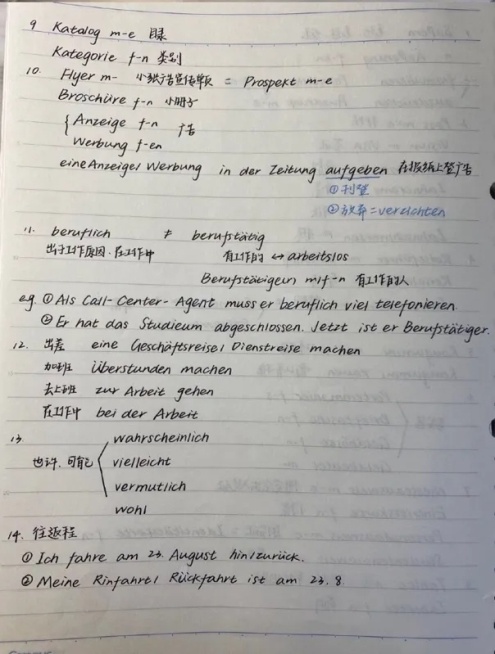 9 Katalog m-e 目录
Kategorie f-n 类别
10. Flyer m- 小纸广告宣传单页 = Prospekt m-e
Broschüre f-n 小册子
{ Anzeige f-n 广告
Werbung f-en
eine Anzeige/ Werbung in der Zeitung aufgeben 在报纸上登广告
① 刊登
② 放弃 = verzichten
11. beruflich ≠ berufstätig
出于工作原因, 在工作中 有工作的 ↔ arbeitslos
Berufstätige(r) m/f-n 有工作的人
eg. ① Als Call-Center-Agent muss er beruflich viel telefonieren.
② Er hat das Studieum abgeschlossen. Jetzt ist er Berufstätiger.
12. 出差 eine Geschäftsreise/ Dienstreise machen
加班 Überstunden machen
去上班 zur Arbeit gehen
在工作中 bei der Arbeit
13. wahrscheinlich
也许, 可能 vielleicht
vermutlich
wohl
14. 往返程
① Ich fahre am 23. August hin/zurück.
② Meine Rinfahrt/ Rückfahrt ist am 23. 8